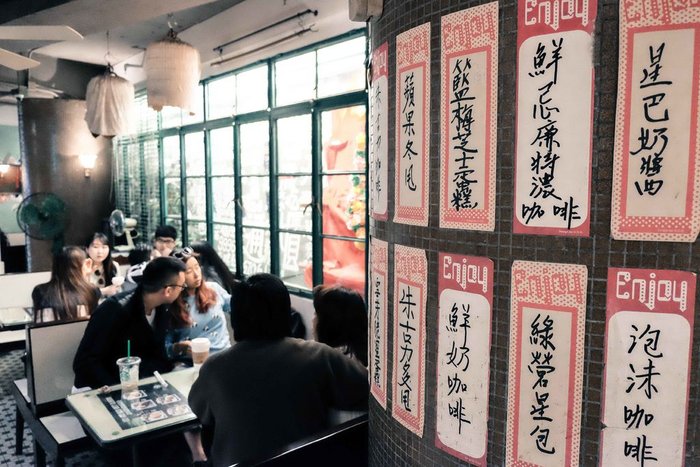 Enjoy
蘋果冬甩
Enjoy
籃梅芝士蛋糕
Enjoy
鮮忌廉特濃咖啡
星巴奶醬
Enjoy
朱古力多甩
Enjoy
鮮奶咖啡
Enjoy
綠營星包
Enjoy
泡沫咖啡